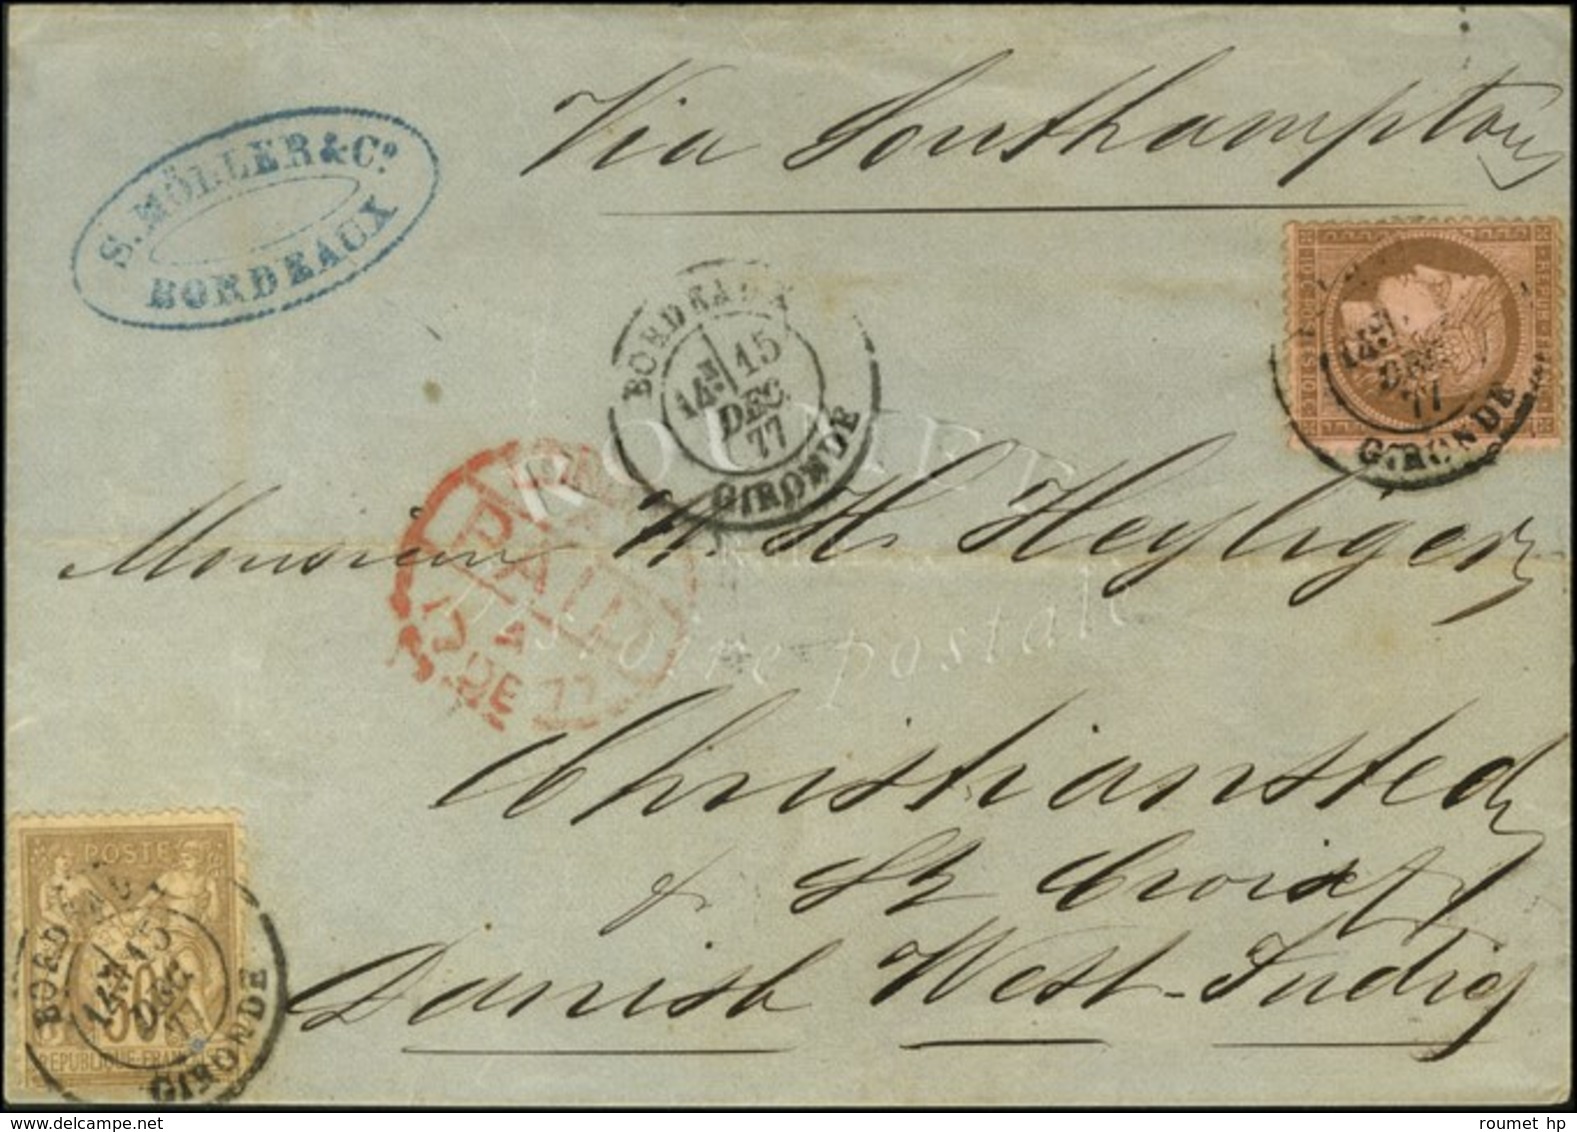 Via Southampton
S. MÖLLER & Cº
BORDEAUX
BORDEAUX
14E/N 15
DEC
77
GIRONDE
14E
DEC
77
GIRONDE
ROUMET
histoire postale
Monsieur W. H. Heyliger
PAID
A
17 DE 77
Christiansted
St Croix
Danish West-Indies
POSTE
30
REPUBLIQUE FRANÇAISE
BORDEAUX
14E/N 15
DEC
77
GIRONDE
roumet hp